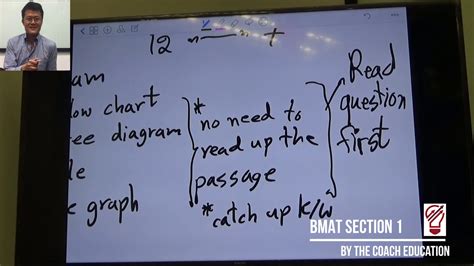 12
am
low chart
ee diagram
le
c graph
* no need to
read up the
passage
* catch up k/w
Read
question
first
BMAT SECTION 1
BY THE COACH EDUCATION